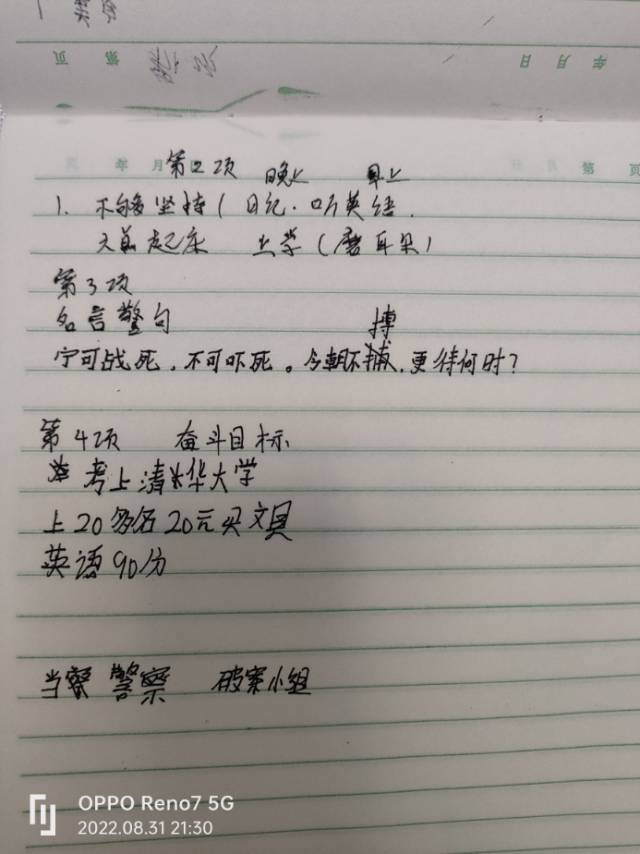 页 第 日 月 年
年 月 第 页
第二项 晚上 早上
1. 不能够坚持(日记.听英语.
天前起床 上学(磨耳朵)
第3项
名言警句 搏
宁可战死,不可吓死。今朝不捕,更待何时?
第4项 奋斗目标
考上清华大学
上20多名20元买文具
英语90分
当察 警察 破案小组
OPPO Reno7 5G
2022.08.31 21:30